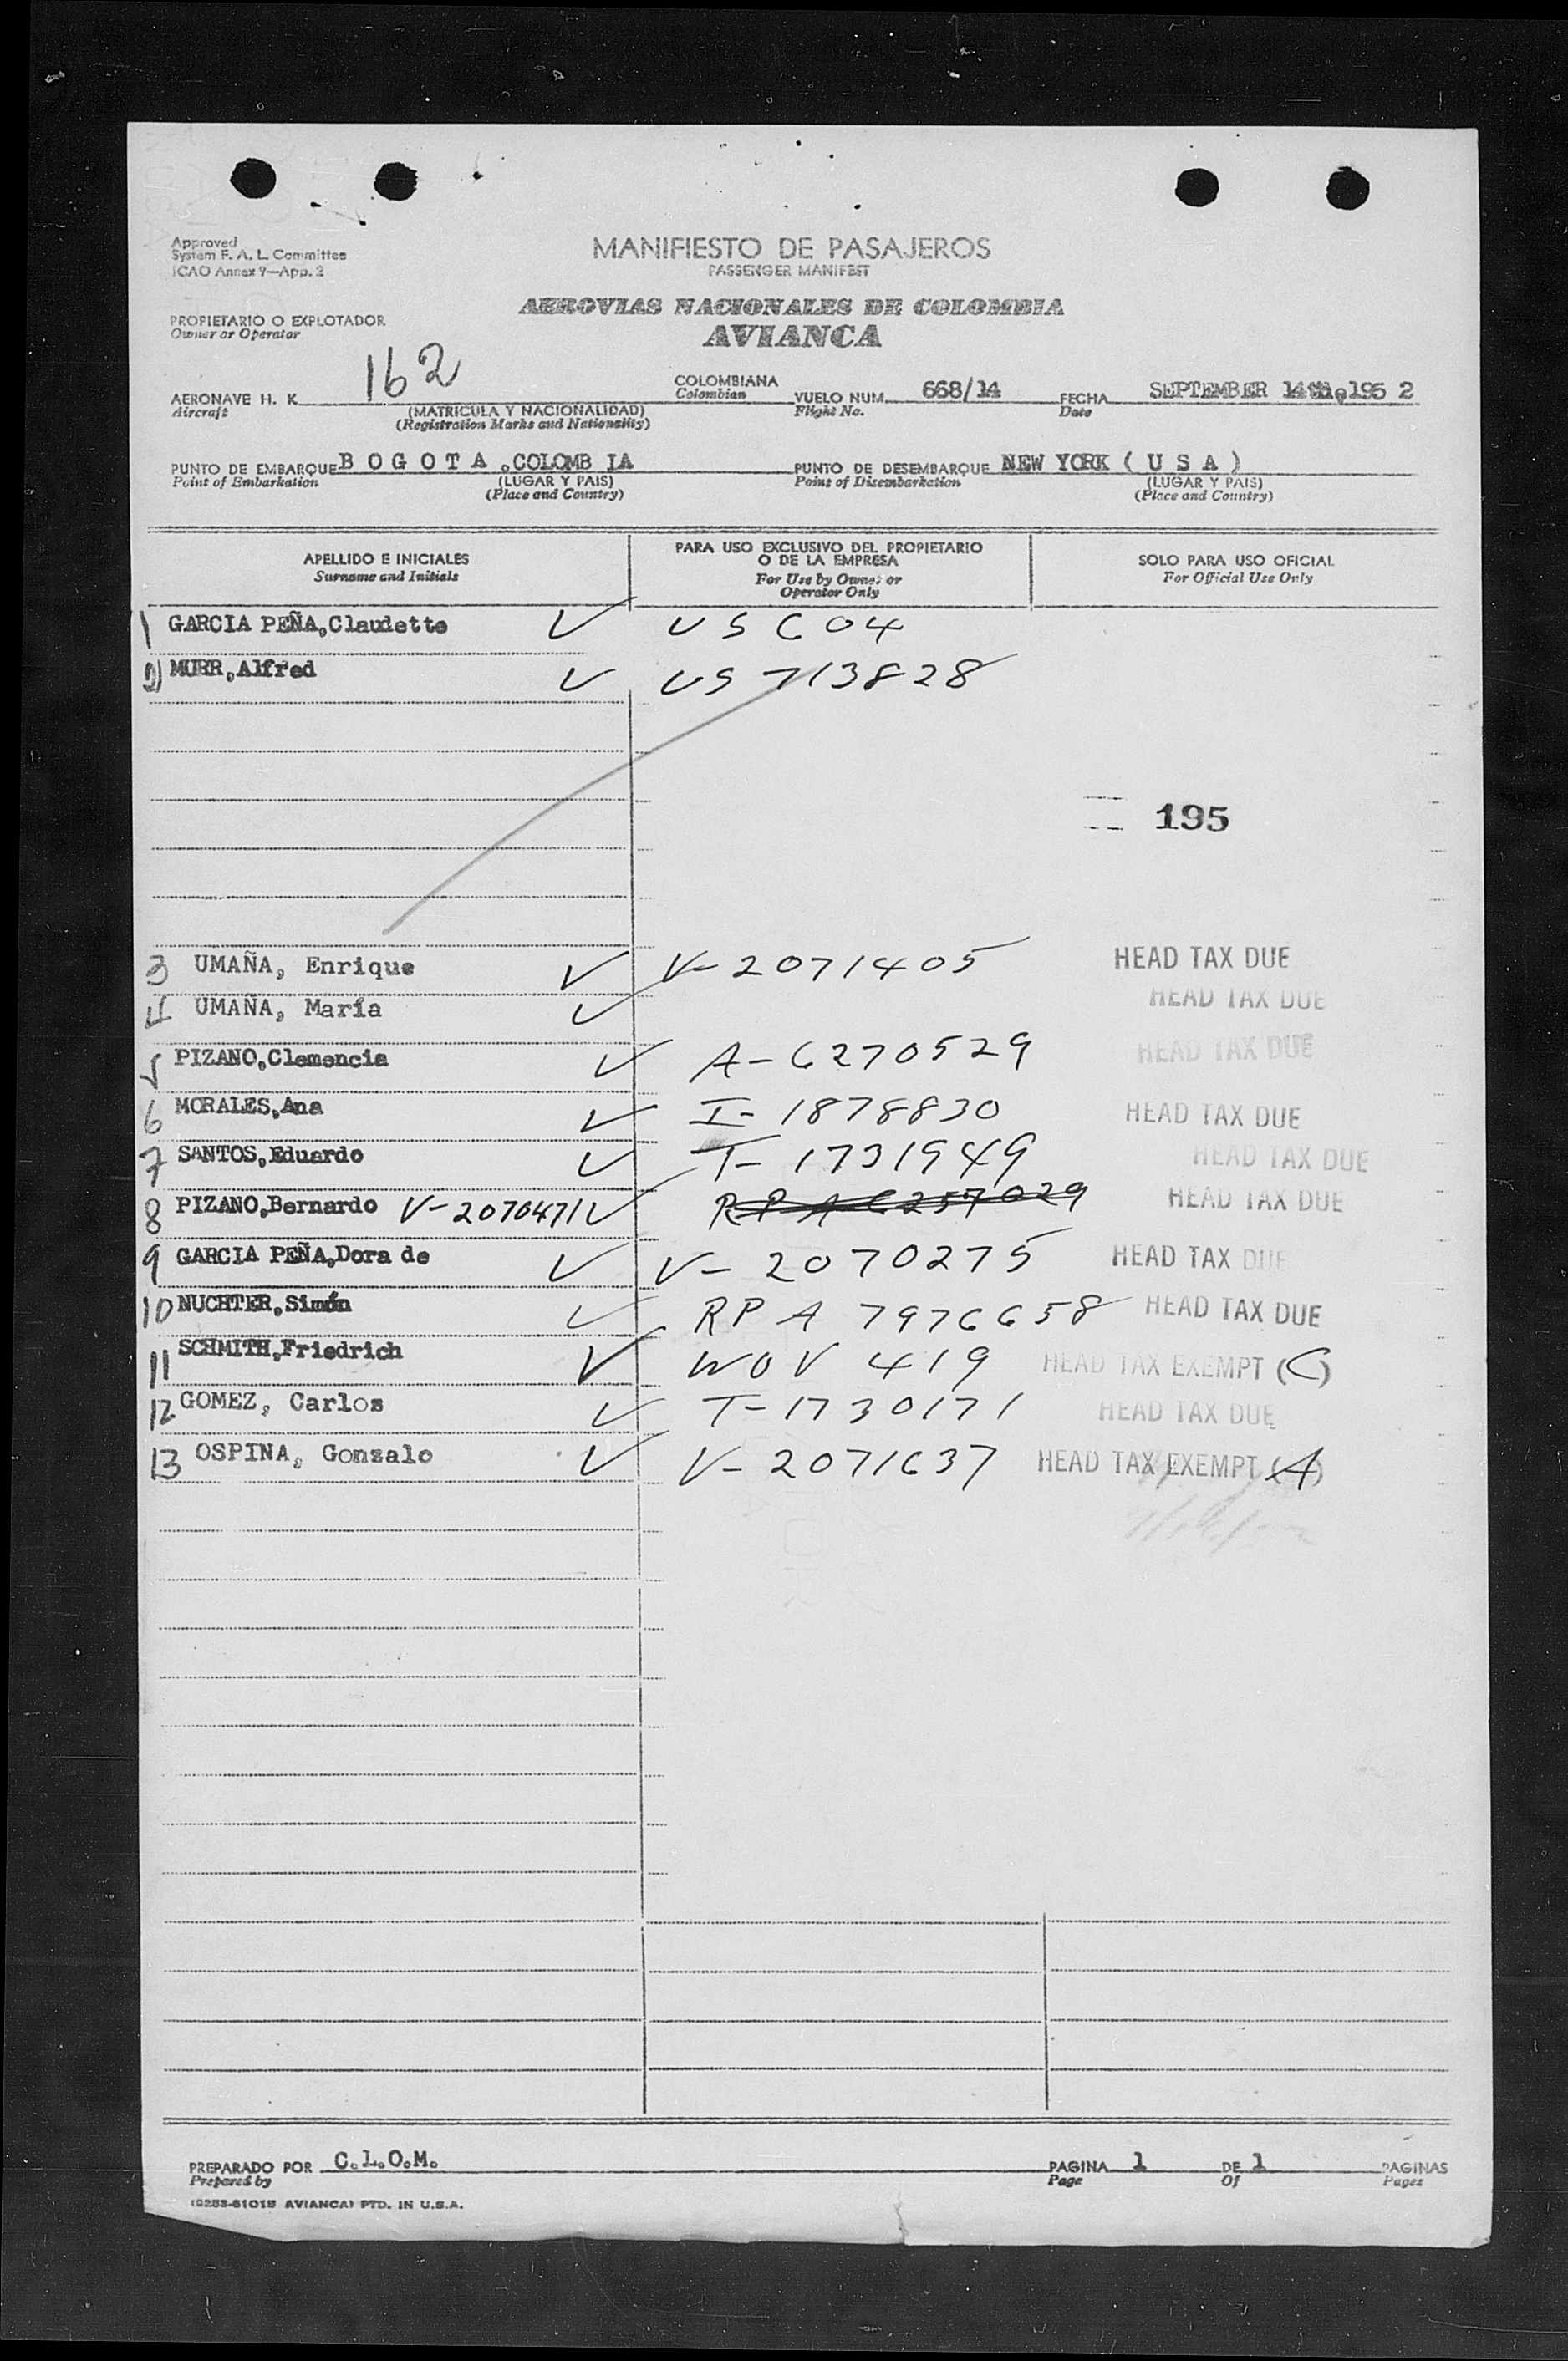 Approved
System F. A. L. Committee
ICAO Annex 9—App. 2
MANIFIESTO DE PASAJEROS
PASSENGER MANIFEST
AEROVIAS NACIONALES DE COLOMBIA
AVIANCA
PROPIETARIO O EXPLOTADOR
Owner or Operator
AERONAVE H. K. 162 COLOMBIANA VUELO NUM. 668/14 FECHA SEPTEMBER 14th, 195 2
Aircraft (MATRICULA Y NACIONALIDAD) Colombian Flight No. Date
(Registration Marks and Nationality)
PUNTO DE EMBARQUE B O G O T A , COLOMB IA PUNTO DE DESEMBARQUE NEW YORK ( U S A )
Point of Embarkation (LUGAR Y PAIS) Point of Disembarkation (LUGAR Y PAIS)
(Place and Country) (Place and Country)
APELLIDO E INICIALES
Surname and Initials
PARA USO EXCLUSIVO DEL PROPIETARIO
O DE LA EMPRESA
For Use by Owner or
Operator Only
SOLO PARA USO OFICIAL
For Official Use Only
1 GARCIA PEÑA,Claudette V US C04
2 MURR,Alfred V US 713828
195
3 UMAÑA, Enrique V V-2071405 HEAD TAX DUE
4 UMAÑA, María V HEAD TAX DUE
5 PIZANO,Clemencia V A-6270529 HEAD TAX DUE
6 MORALES,Ana V I-1878830 HEAD TAX DUE
7 SANTOS,Eduardo V T-1731949 HEAD TAX DUE
8 PIZANO,Bernardo V-2070471 V RP A 6257029 HEAD TAX DUE
9 GARCIA PEÑA,Dora de V V-2070275 HEAD TAX DUE
10 NUCHTER,Simón V RP A 7976658 HEAD TAX DUE
11 SCHMITH,Friedrich V WOV 419 HEAD TAX EXEMPT (C)
12 GOMEZ, Carlos V T-1730171 HEAD TAX DUE
13 OSPINA, Gonzalo V V-2071637 HEAD TAX EXEMPT (A)
PREPARADO POR C.L.O.M. PAGINA 1 DE 1 PAGINAS
Prepared by Page Of Pages
AVIANCA) PTD. IN U.S.A.